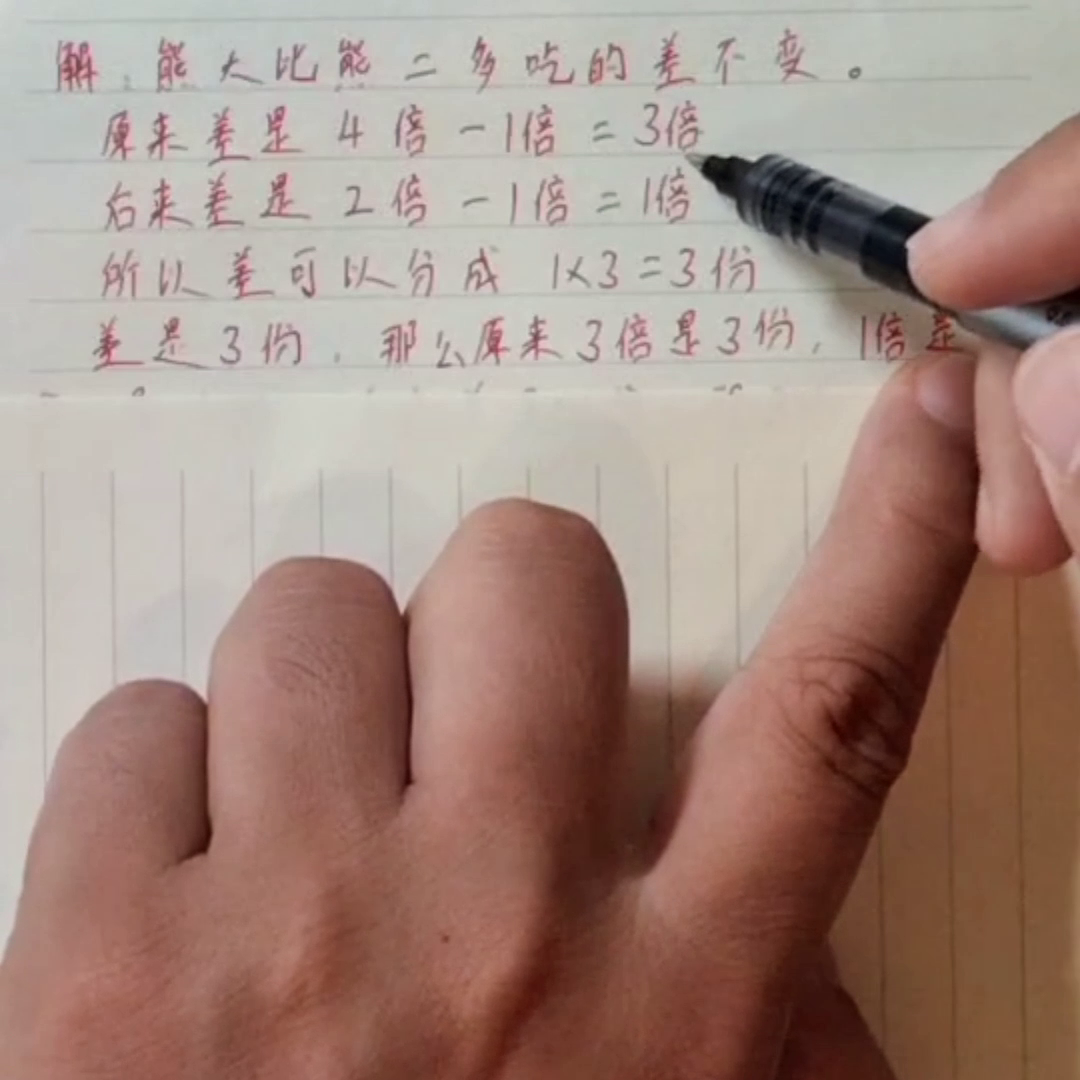 解：熊大比熊二多吃的差不变。
原来差是 4倍-1倍=3倍
后来差是 2倍-1倍=1倍
所以差可以分成 1×3=3份
差是3份，那么原来3倍是3份，1倍是